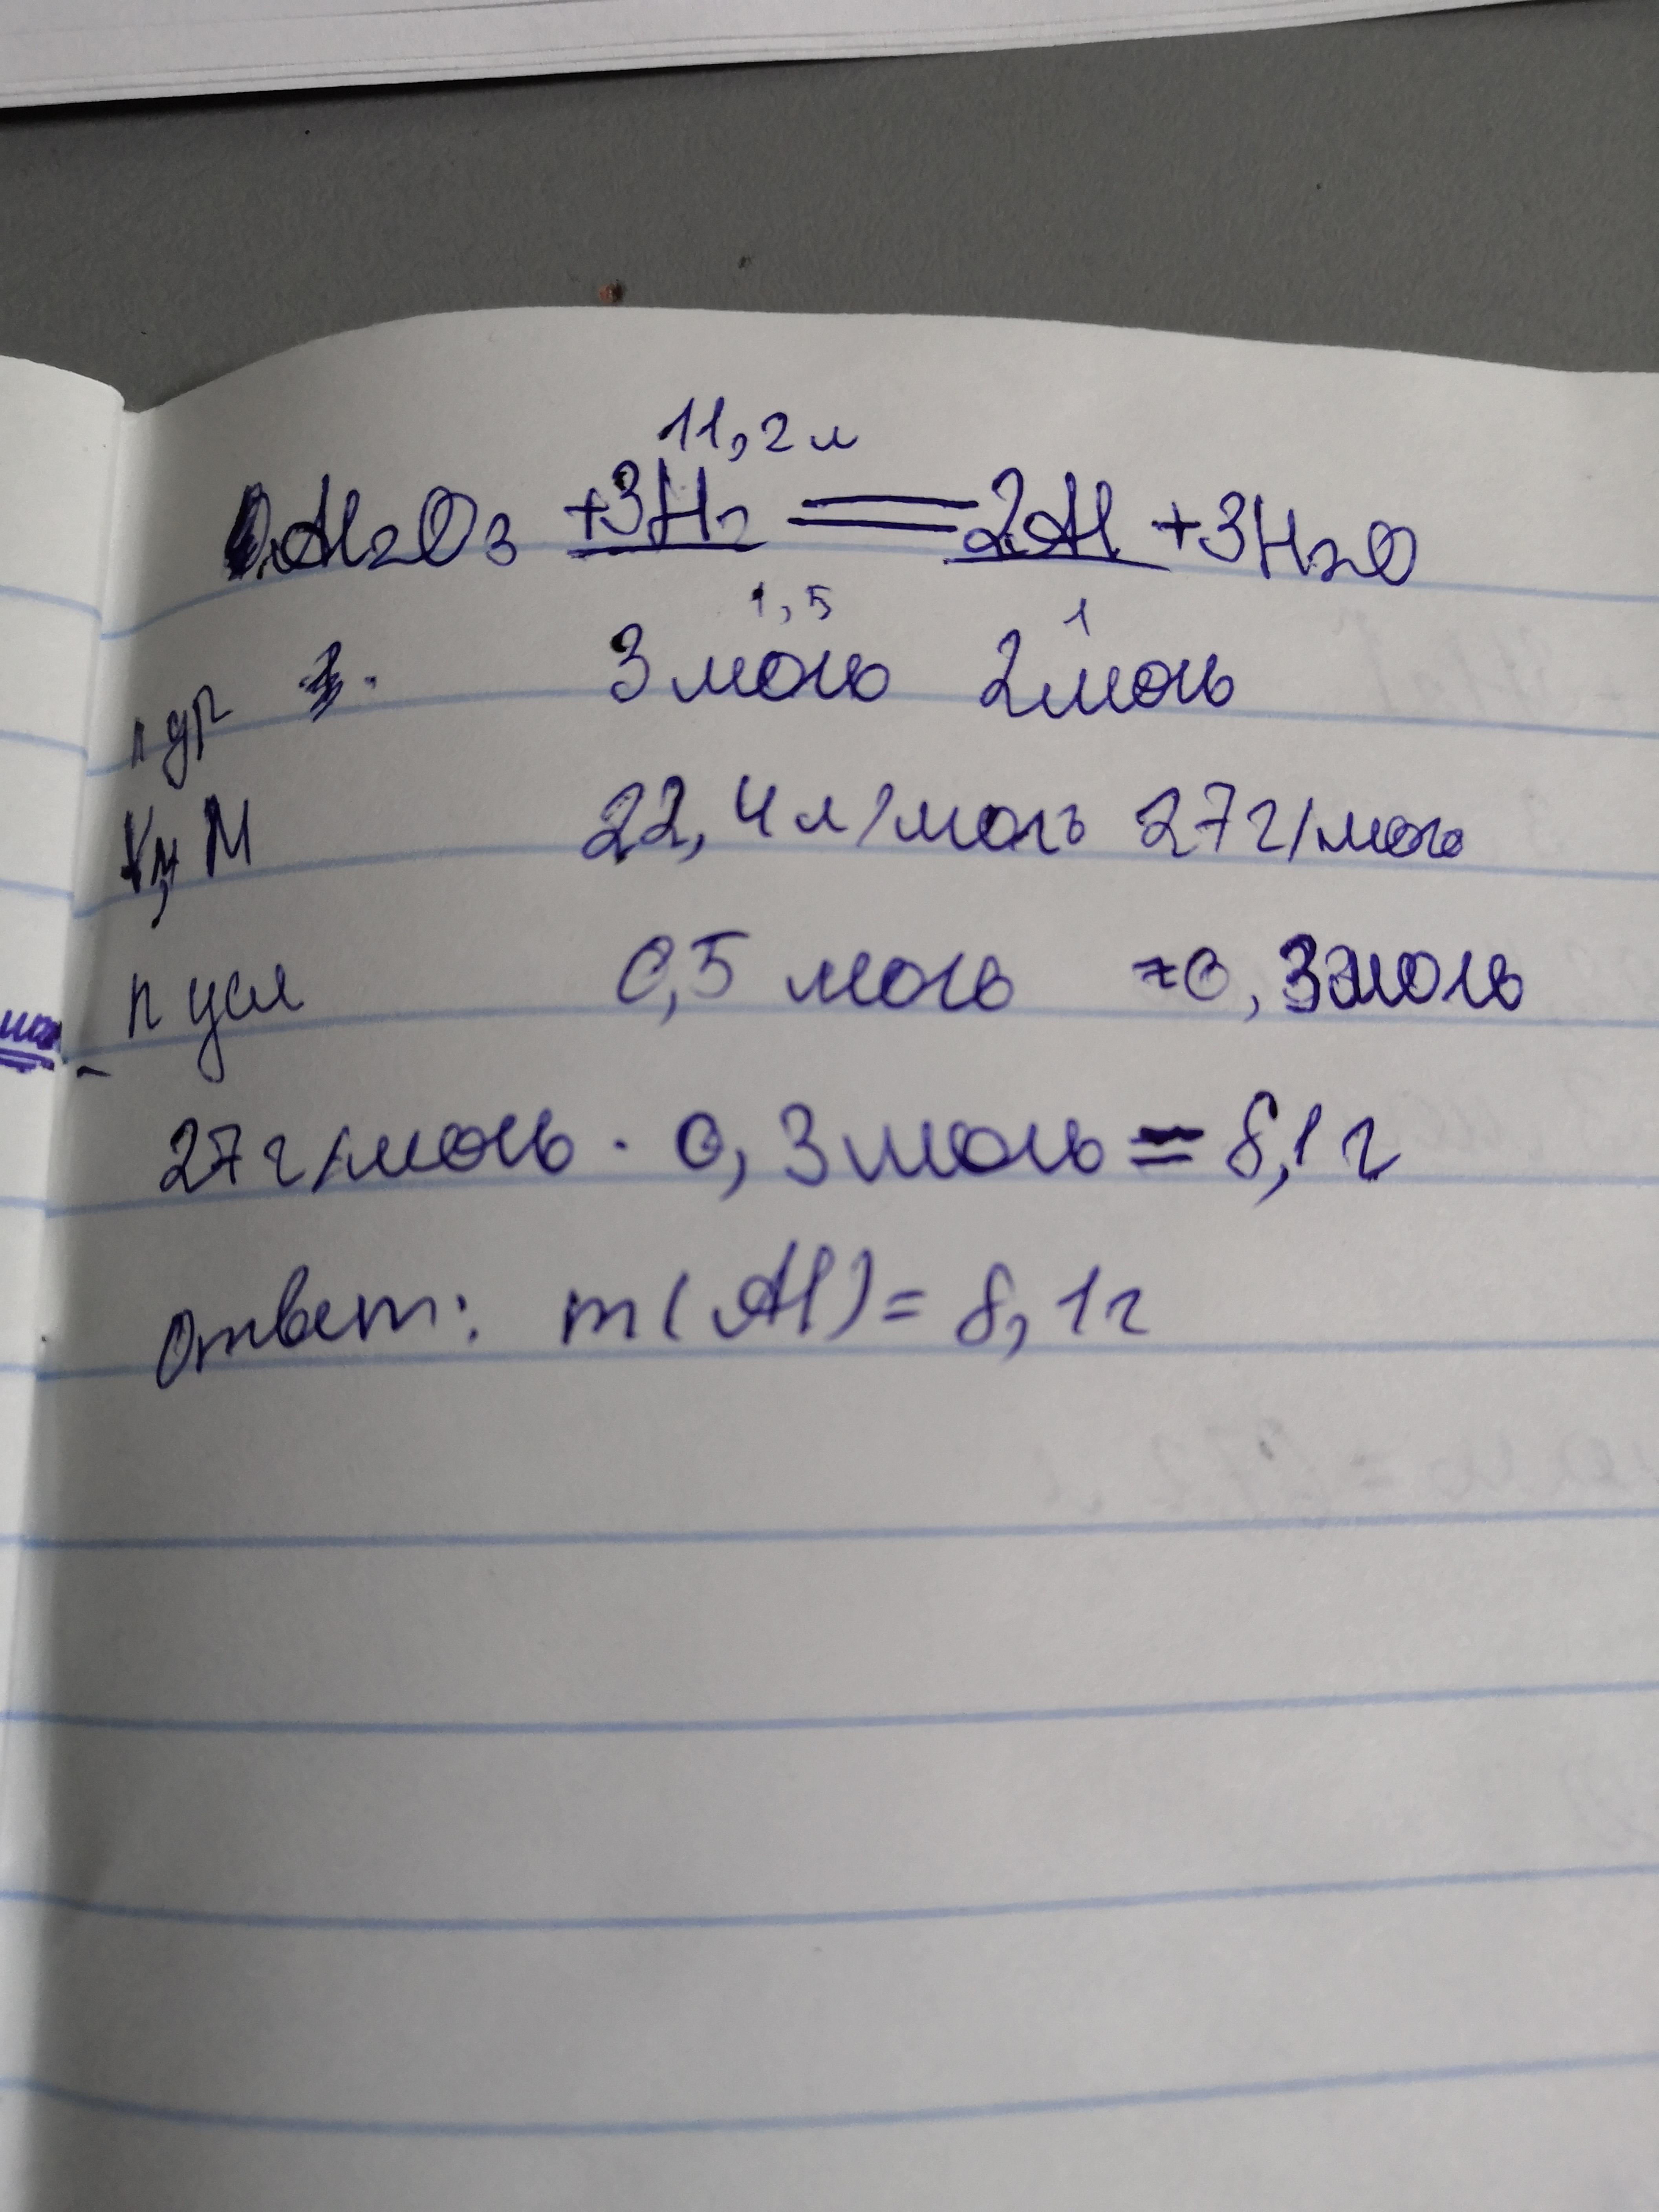 11,2 л
Al2O3 +3H2 = 2Al +3H2O
1,5 1
n ур 3 моль 2 моль
Vм, M 22,4 л/моль 27 г/моль
n усл 0,5 моль ≈0,3 моль
27 г/моль · 0,3 моль = 8,1 г
Ответ: m(Al) = 8,1 г